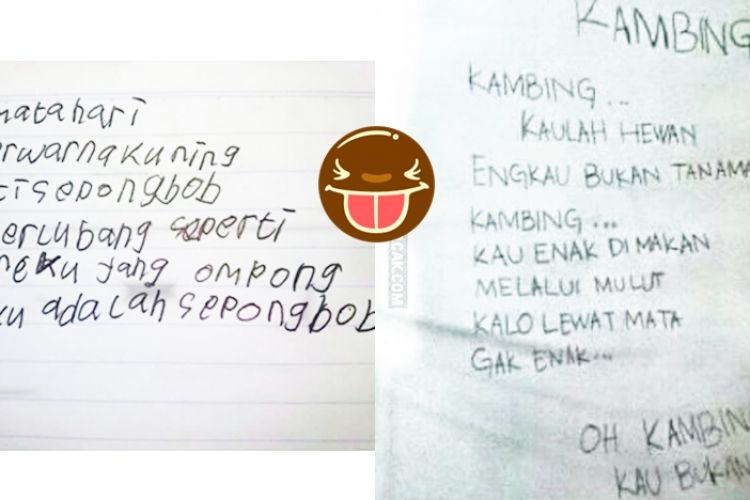 matahari
erwarna kuning
ti sepongbob
erlubang seperti
neku yang ompong
ku adalah sepongbob
KAMBING
KAMBING...
KAULAH HEWAN
ENGKAU BUKAN TANAMA
KAMBING...
KAU ENAK DI MAKAN
MELALUI MULUT
KALO LEWAT MATA
GAK ENAK...
OH KAMBING
KAU BUKAN
CAK.COM